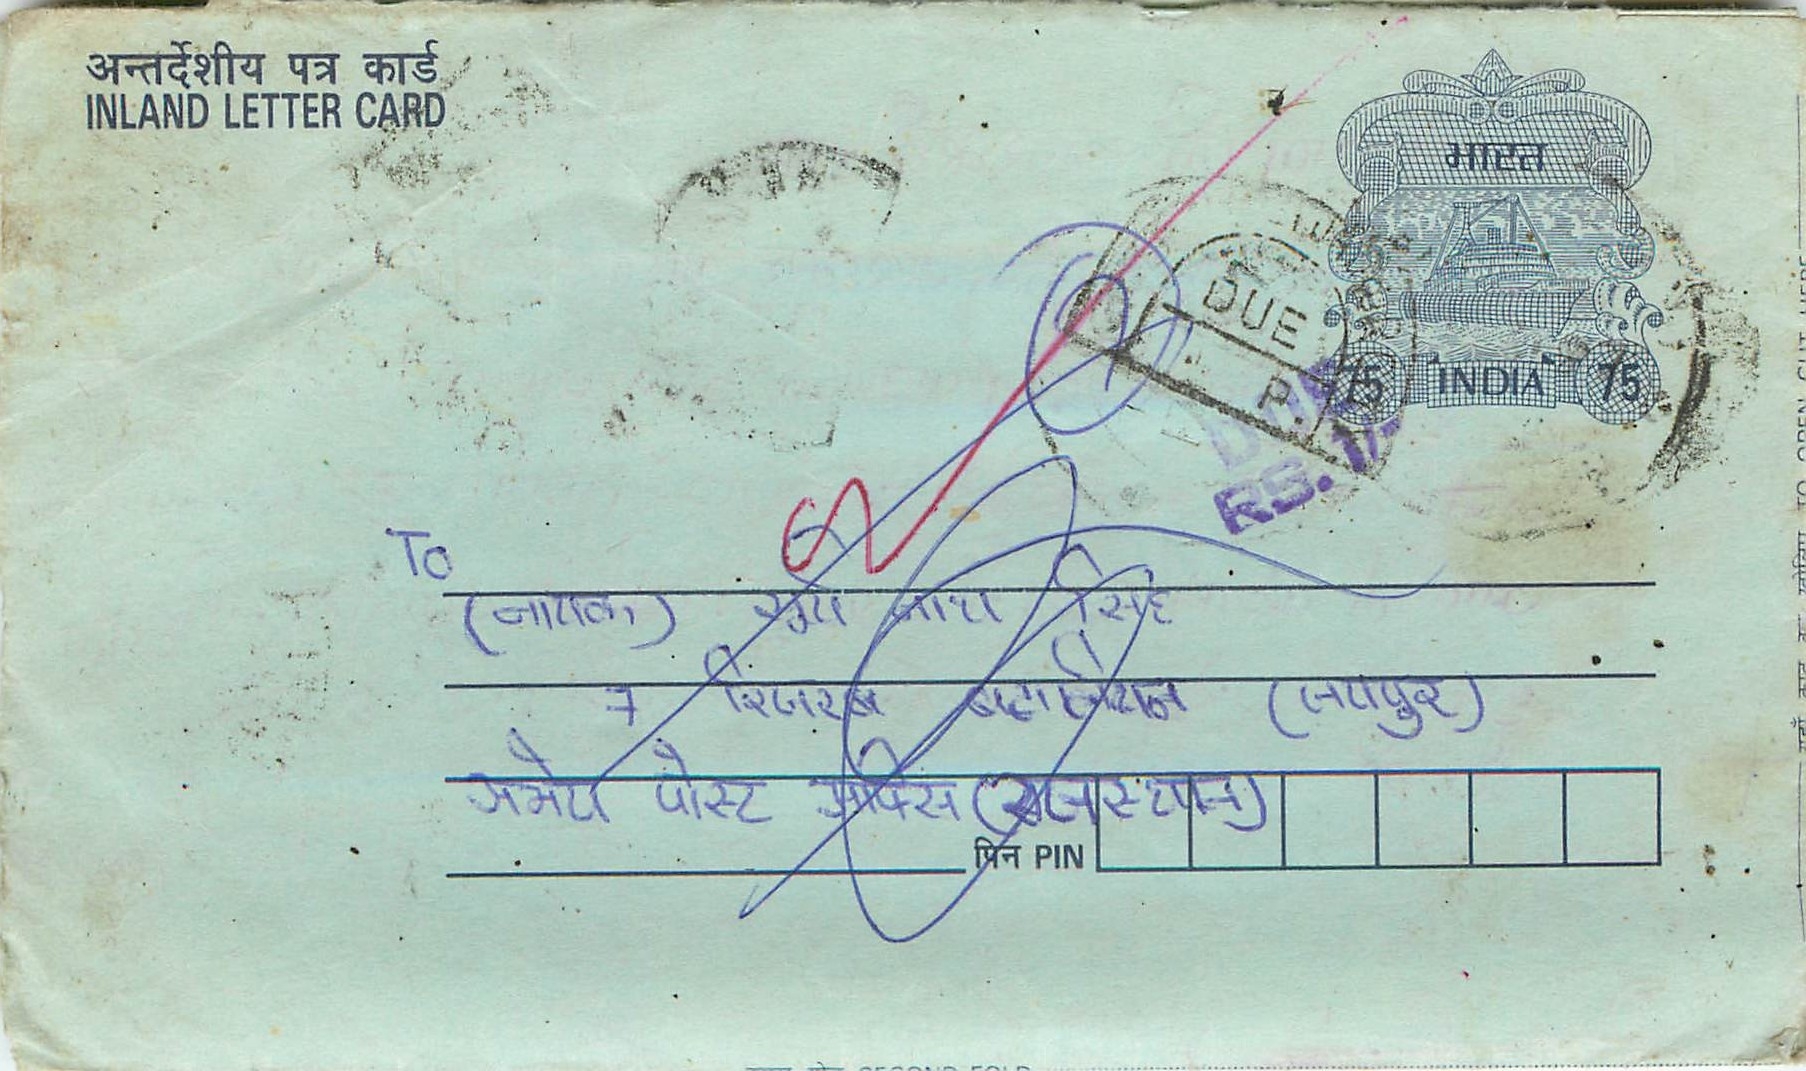 अन्तर्देशीय पत्र कार्ड
INLAND LETTER CARD
भारत
75 INDIA 75
DUE
P.
DUE
RS. 1/-
To
(नायक) सुरेश सिंह
7 रिजरब बटालियन (जयपुर)
पोस्ट ऑफिस (राजस्थान)
पिन PIN
TO OPEN CUT HERE
SECOND FOLD